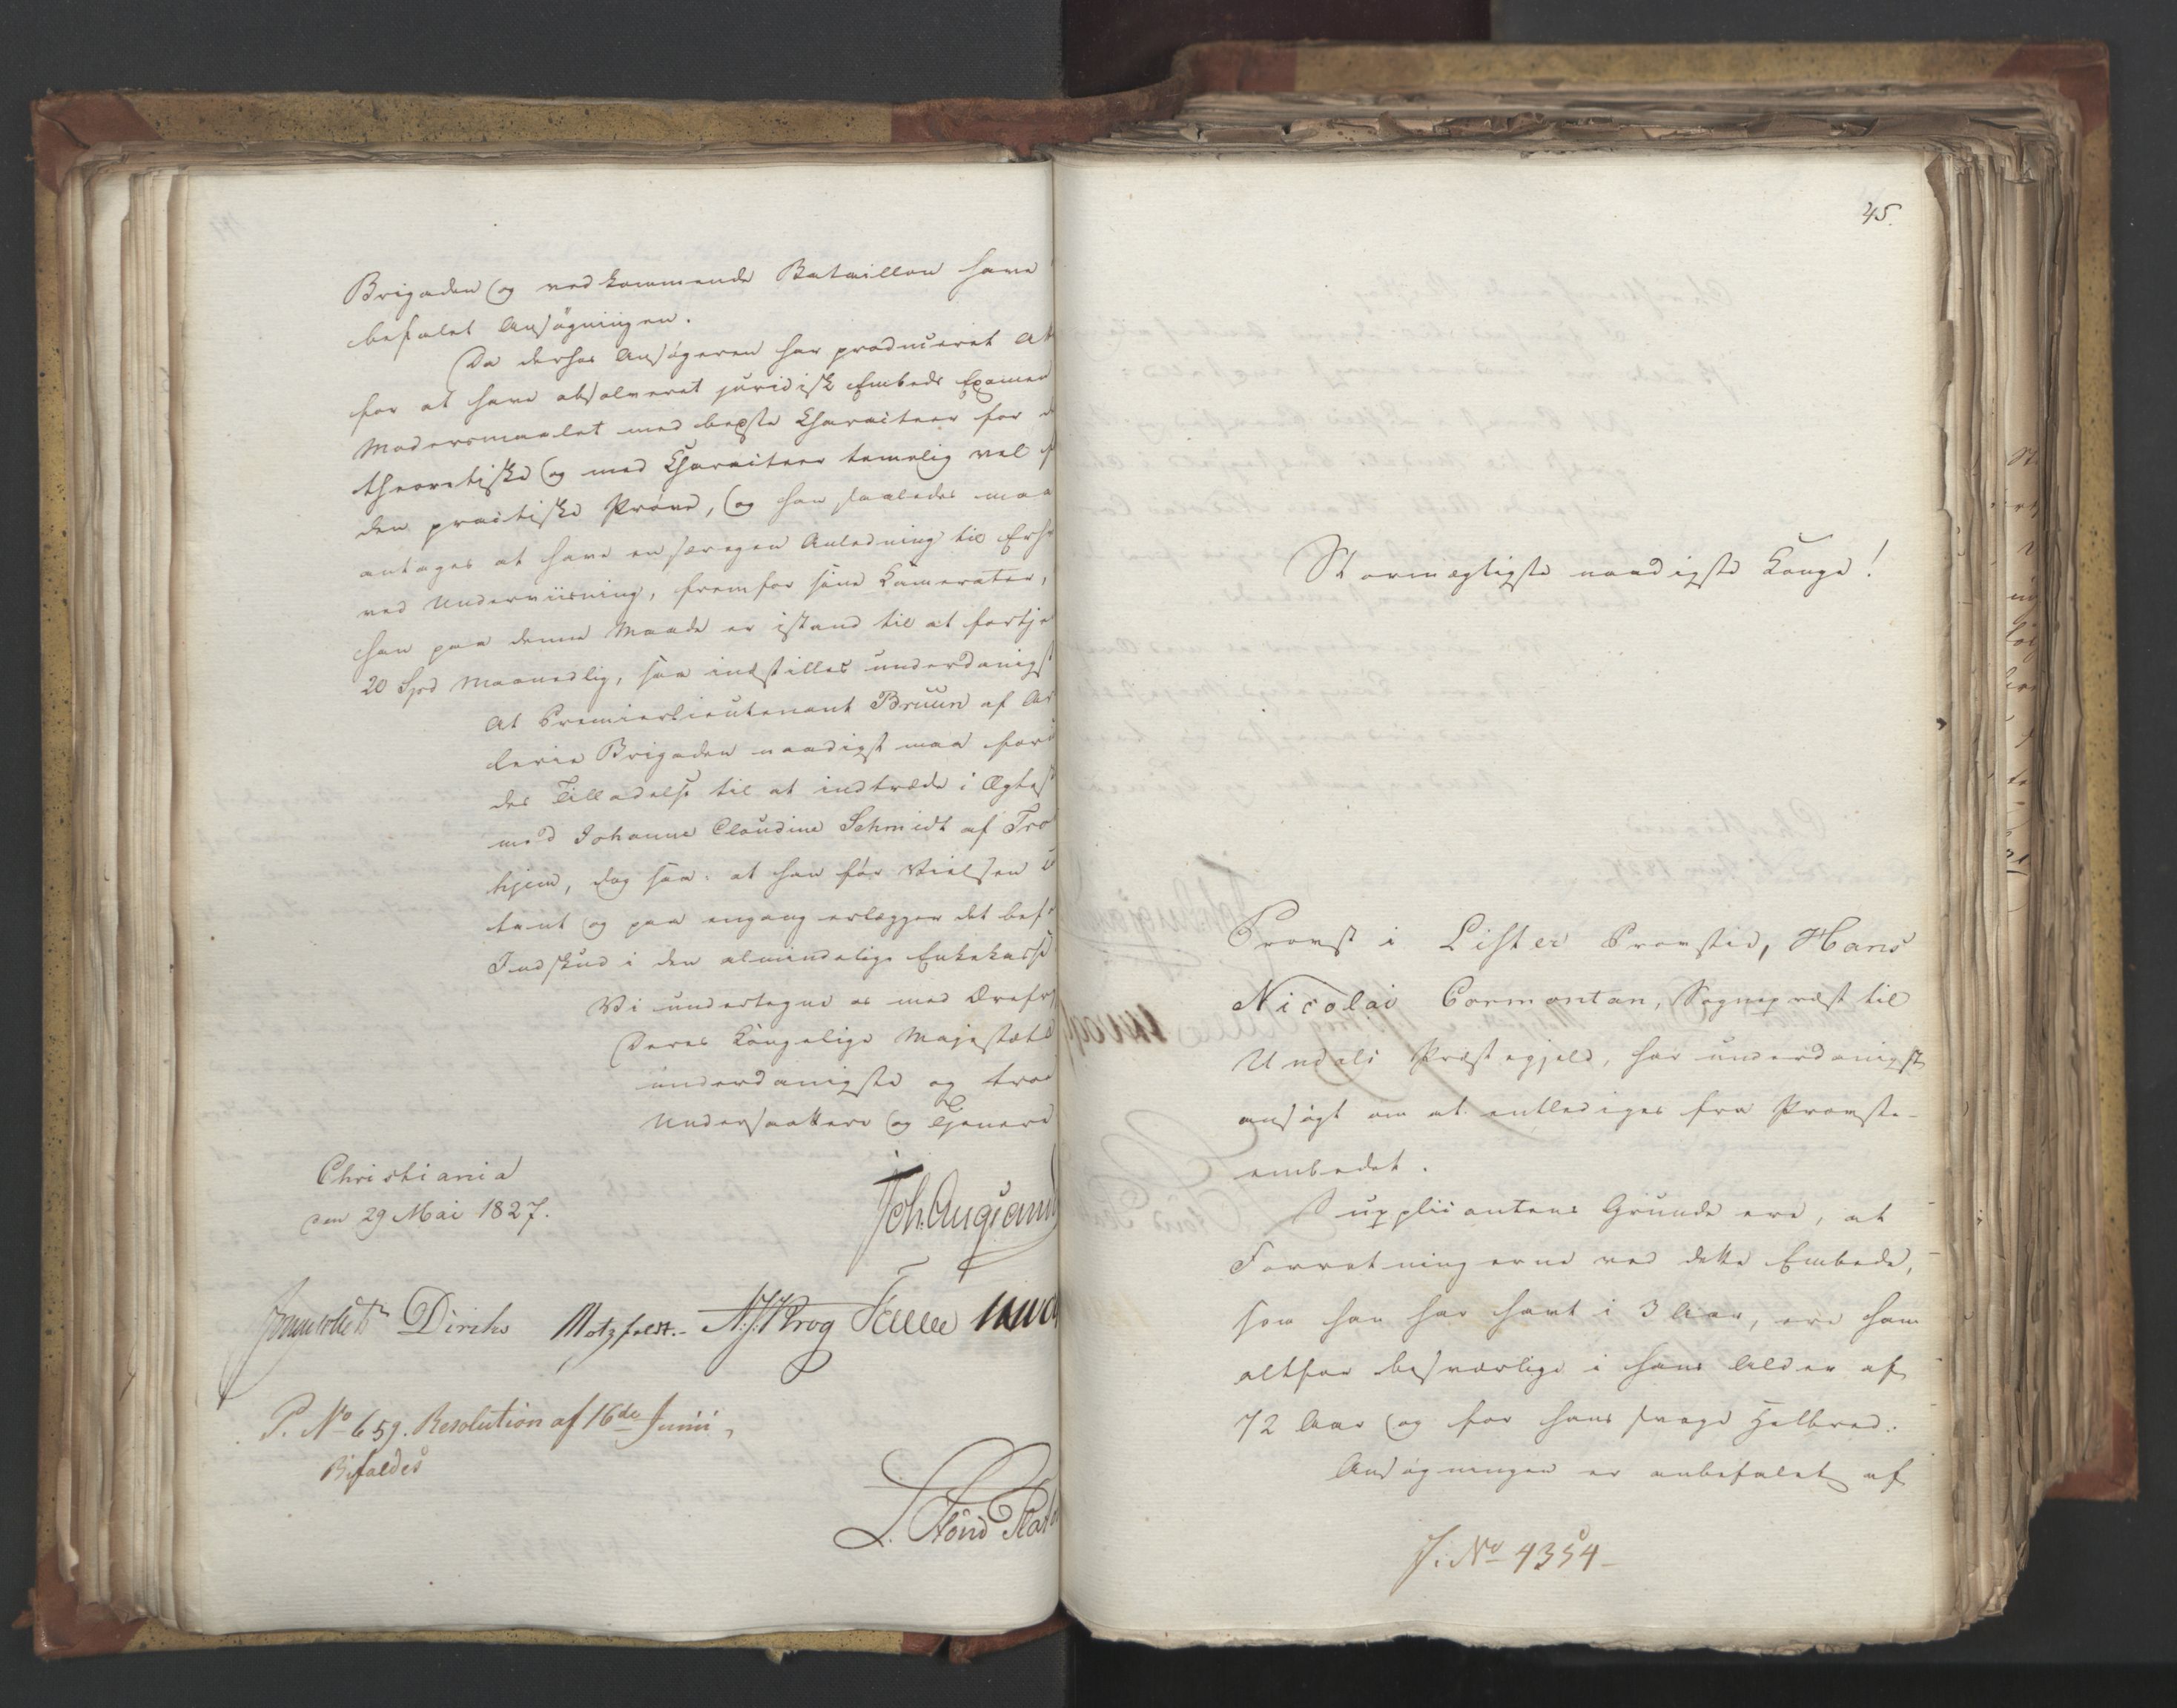 Brigaden og vedkommende Bataillon have
befalet Ansøgningen.
Da derhos Ansøgeren har produceret At
for at have absolveret juridisk Embeds Examen
Modersmaalet med bedste Characteer for d
theoretiske og med Characteer temmelig vel f
den practiske Prøve, og han saaledes maa
antages at have en særegen Anledning til Erhv
ved Underviisning, fremfor sine Kamerater,
han paa denne Maade er istand til at fortje
20 Spd Maanedlig, saa indstilles underdanigst
At Premierlieutenant Bruun af Ar
lerie Brigaden naadigst maa for
des Tilladelse til at indtræde i Ægtes
med Johanne Claudine Schmidt af Tro
hjem, dog saa: at han før Vielsen
tant og paa engang erlægger det bef
Indskud i den almindelige Enkekasse
Vi undertegne os med Ærefr
Deres Kongelige Majestæts
underdanigste og troe
Undersaattere og Tjenere
Christiania
den 29 Mai 1827.
Joh. Aug Sand
Sommerhielm Diriks Motzfeldt. N. J. Krog Fasting
P. No 659. Resolution af 16de Junii,
Bifaldes
45.
Stormægtigste naadigste Konge!
Provst i Lister Provstie, Hans
Nicolai Cormontan, Sognepræst til
Undals Præstegjeld, har underdanigst
ansøgt om at entlediges fra Provste-
embedet.
Supplicantens Grunde ere, at
Forretningerne ved dette Embede,
som han har havt i 3 Aar, ere ham
altfor besværlige i hans Alder af
72 Aar og for hans svage Helbred.
Ansøgningen er anbefalet af
J. No 4354